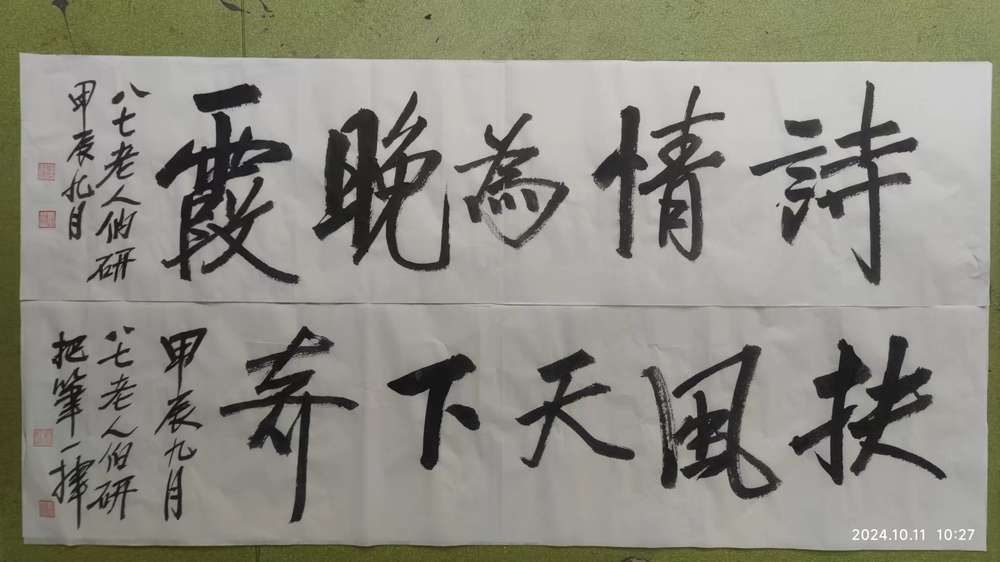 詩情為晚霞
甲辰九月
八七老人伯研
扶風天下奇
甲辰九月
八七老人伯研
把筆一揮
2024.10.11 10:27